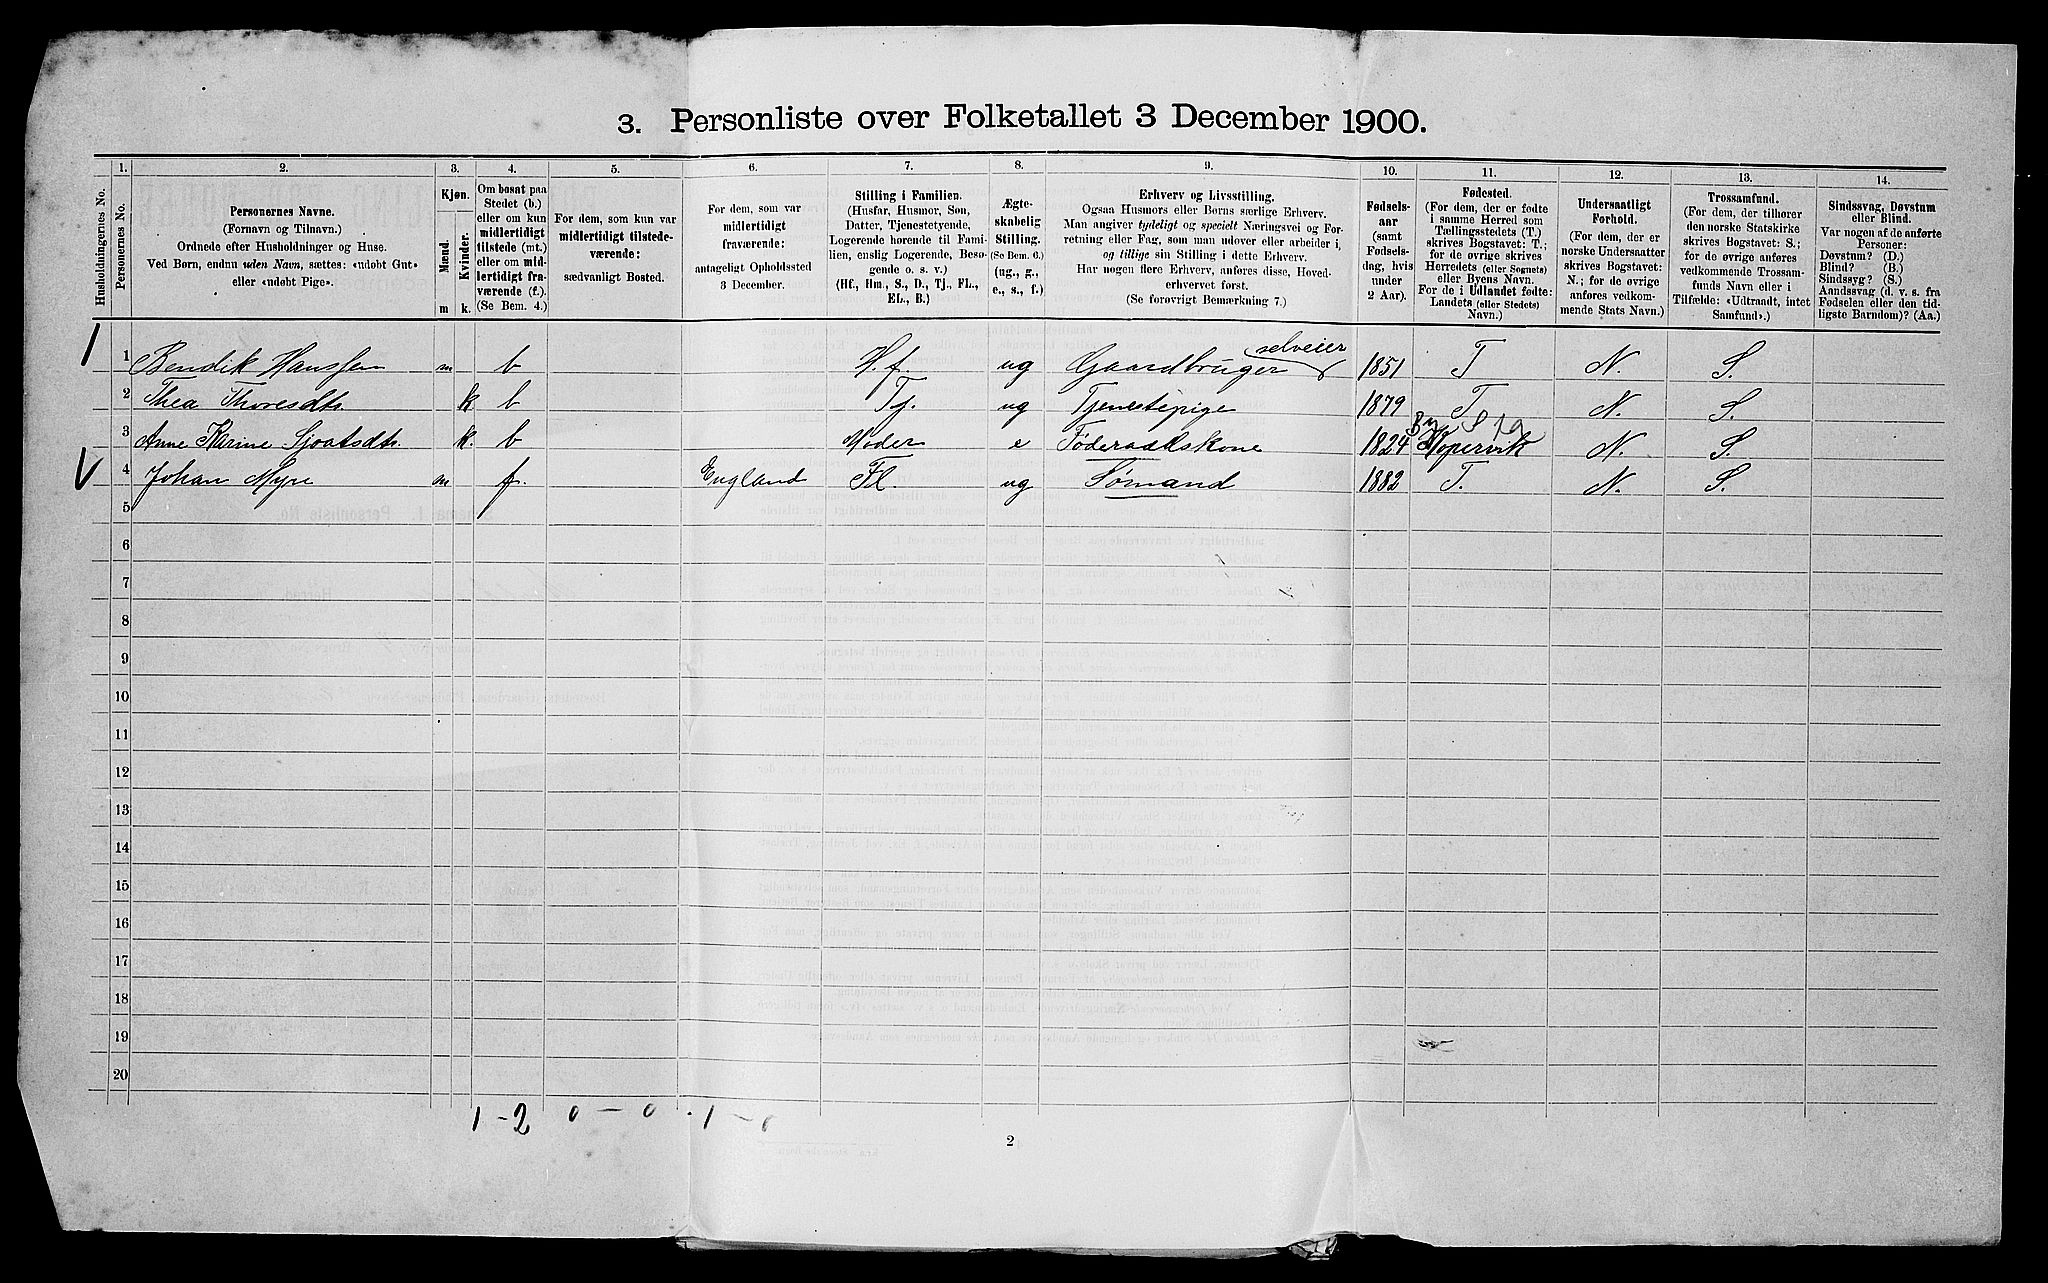 3. Personliste over Folketallet 3 December 1900.
Husholdningernes No.
1.
Personernes No.
2.
Personernes Navne.
(Fornavn og Tilnavn.)
Ordnede efter Husholdninger og Huse.
Ved Børn, endnu uden Navn, sættes: «udøbt Gut»
eller «udøbt Pige».
3.
Kjøn.
Mænd.
Kvinder.
m
k.
4.
Om bosat paa
Stedet (b.)
eller om kun
midlertidigt
tilstede (mt.)
eller om mid-
lertidigt fra-
værende (f.).
(Se Bem. 4.)
5.
For dem, som kun var
midlertidigt tilstede-
værende:
sædvanligt Bosted.
6.
For dem, som var
midlertidigt
fraværende:
antageligt Opholdssted
3 December.
7.
Stilling i Familien.
(Husfar, Husmor, Søn,
Datter, Tjenestetyende,
Logerende hørende til Fami-
lien, enslig Logerende, Besø-
gende o. s. v.)
(Hf., Hm., S., D., Tj., Fl.,
El., B.)
8.
Ægte-
skabelig
Stilling.
(Se Bem. 6.)
(ug., g.,
e., s., f.)
9.
Erhverv og Livsstilling.
Ogsaa Husmors eller Børns særlige Erhverv.
Man angiver tydeligt og specielt Næringsvei og For-
retning eller Fag, som man udover eller arbeider i,
og tillige sin Stilling i dette Erhverv.
Har nogen flere Erhverv, anføres disse, Hoved-
erhvervet først.
(Se forøvrigt Bemærkning 7.)
10.
Fødsels-
aar
(samt
Fødsels-
dag, hvis
under
2 Aar).
11.
Fødested.
(For dem, der er fødte
i samme Herred som
Tællingsstedets (T.)
skrives Bogstavet: T.;
for de øvrige skrives
Herredets (eller Sognets)
eller Byens Navn.
For de i Udlandet fødte:
Landets (eller Stedets)
Navn.)
12.
Undersaatligt
Forhold.
(For dem, der er
norske Undersaatter
skrives Bogstavet:
N.; for de øvrige
anføres vedkom-
mende Stats Navn.)
13.
Trossamfund.
(For dem, der tilhører
den norske Statskirke
skrives Bogstavet: S.;
for de øvrige anføres
vedkommende Trossam-
funds Navn eller i
Tilfælde: «Udtraadt, intet
Samfund».)
14.
Sindssvag, Døvstum
eller Blind.
Var nogen af de anførte
Personer:
Døvstum? (D.)
Blind? (B.)
Sindssyg? (S.)
Aandssvag (d. v. s. fra
Fødselen eller den tid-
ligste Barndom)? (Aa.)
1 1 Bendik Hanssen m b H.f. ug Gaardbruger selveier 1851 T N. S.
2 Thea Thoresdtr. k b Tj. ug Tjenestepige 1879 T. N. S.
3 Anne Karine Sjoatsdtr. k. b Moder e Føderaadskone 1824 Kopervik N. S.
4 Johan Myre m f. England Fl. ug Sømand 1882 T. N. S.
5
6
7
8
9
10
11
12
13
14
15
16
17
18
19
20
1 - 2 0 - 0 . 1 - 0
2